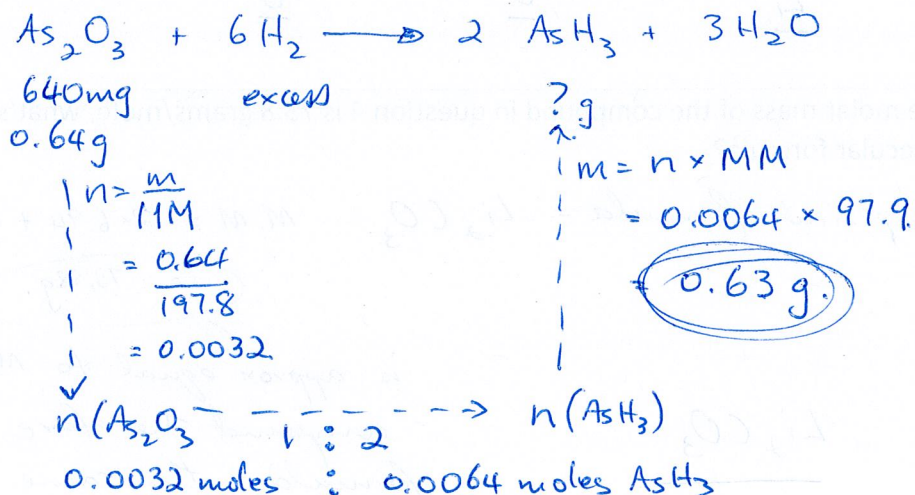 As₂O₃ + 6H₂ → 2 AsH₃ + 3H₂O
640mg excess ? g
0.64g
n = m / MM
= 0.64 / 197.8
= 0.0032
m = n × MM
= 0.0064 × 97.9
= 0.63 g.
n(As₂O₃ - - - - - -> n(AsH₃)
1 : 2
0.0032 moles : 0.0064 moles AsH₃